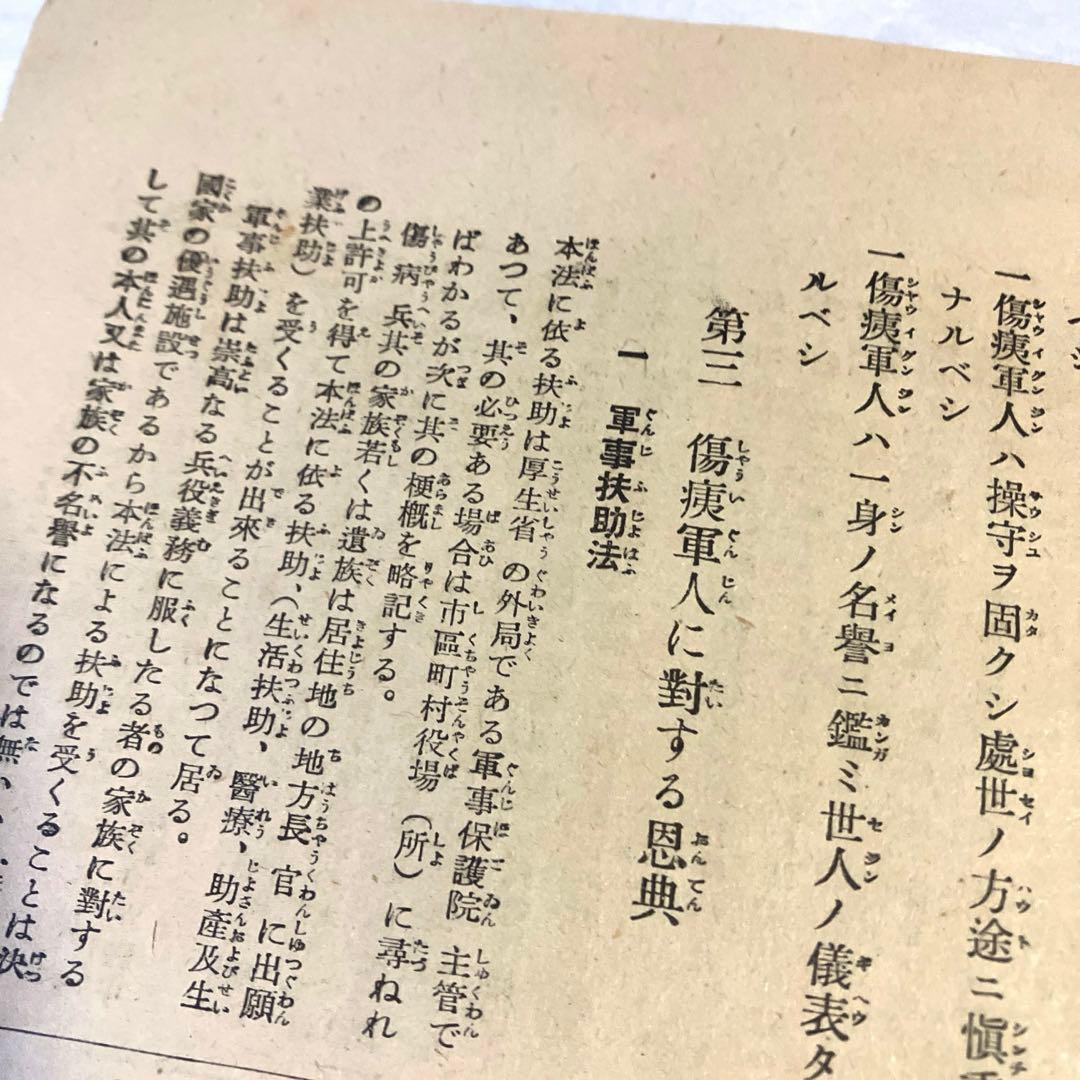 一傷痍軍人ハ操守ヲ固クシ處世ノ方途ニ愼
ナルベシ
一傷痍軍人ハ一身ノ名譽ニ鑑ミ世人ノ儀表タ
ルベシ
第三 傷痍軍人に對する恩典
一 軍事扶助法
本法に依る扶助は厚生省の外局である軍事保護院主管で
あつて、其の必要ある場合は市區町村役場(所)に尋ねれ
ばわかるが次に其の梗概を略記する。
傷病兵其の家族若くは遺族は居住地の地方長官に出願
の上許可を得て本法に依る扶助、(生活扶助、醫療、助產及生
業扶助)を受くることが出來ることになつて居る。
軍事扶助は崇高なる兵役義務に服したる者の家族に對する
國家の優遇施設であるから本法による扶助を受くることは決
して其の本人又は家族の不名譽になるのでは無い